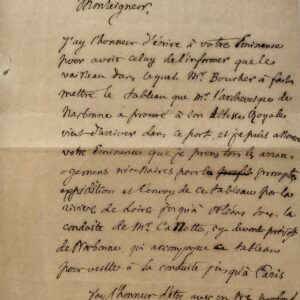 Monseigneur,
J'ay l'honneur d'écrire à votre Eminence
pour avoir celuy de l'informer que le
vaisseau dans lequel Mr. Boucher a fait
mettre le tableau que Mr. l'archevesque de
Narbonne a promis à son Altesse Royale
vient d'arriver dans ce port et je puis assurer
votre Eminence que je prens tous les arran-
gemens nécessaires pour la prompte
expédition et l'envoy de ce tableau par la
riviere de Loire jusqu'à Orléans sous la
conduite de Mr. cy devant
de Narbonne qui accompagne ce tableau
pour veiller à la conduite jusqu'à Paris
J'ay l'honneur d'être avec un très profond